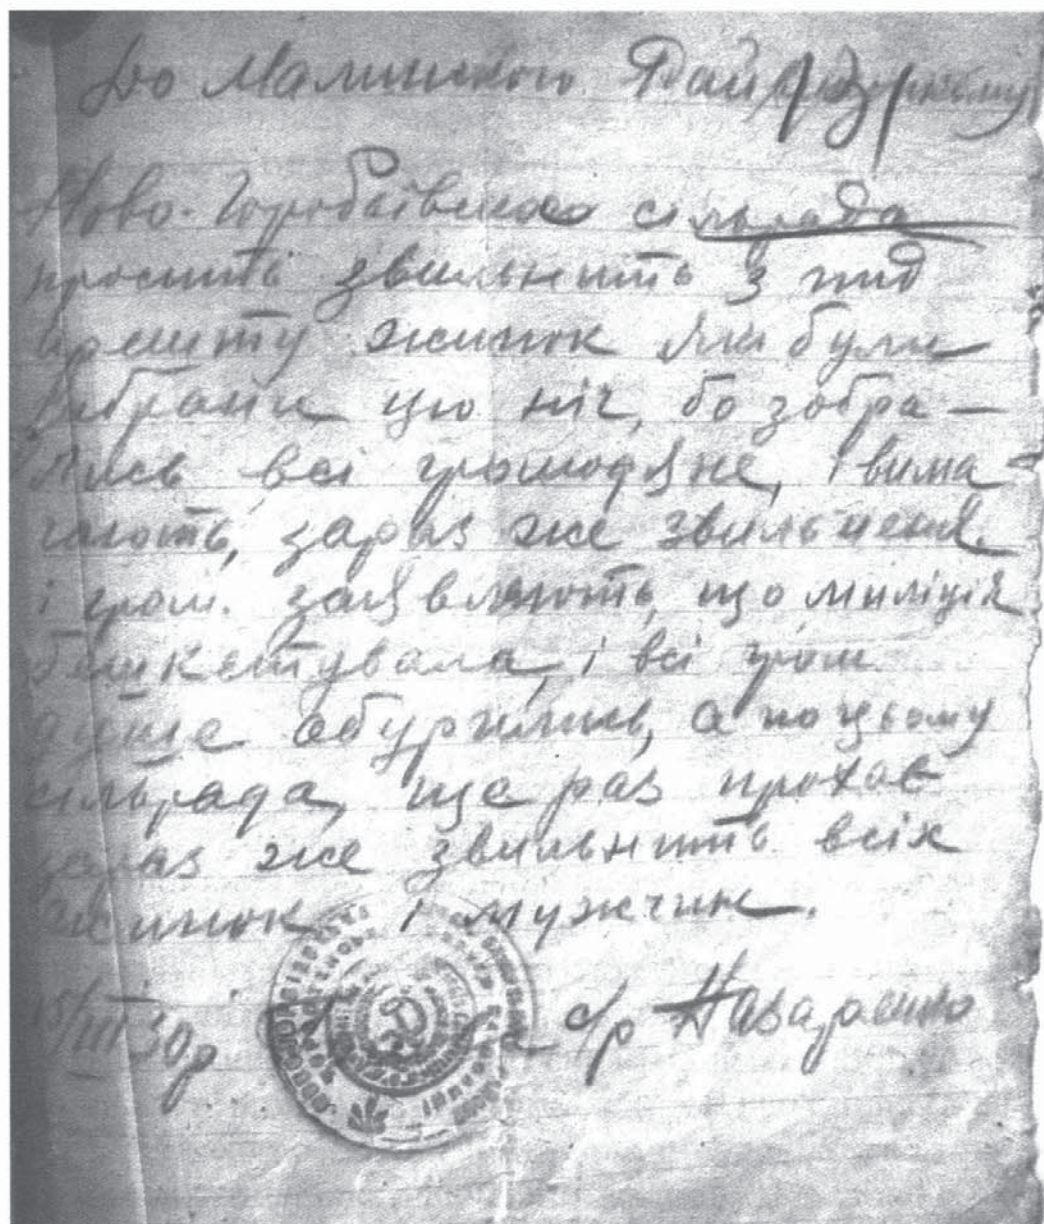 До Малинського Рай
Ново-Горобіївська сільрада
просить звильнить з пид
арешту жинок які були
забрані цю ніч, бо зобра-
лись всі громодяне, і вима-
гають, зараз же звильнення.
і гром. заявляють, що миліція
бешкетувала, і всі гром
адяне обурились, а по цьому
сільрада, ще раз прохає
зараз же звильнить всіх
жинок і мужчин.
15/III 30р с/р Назаренко